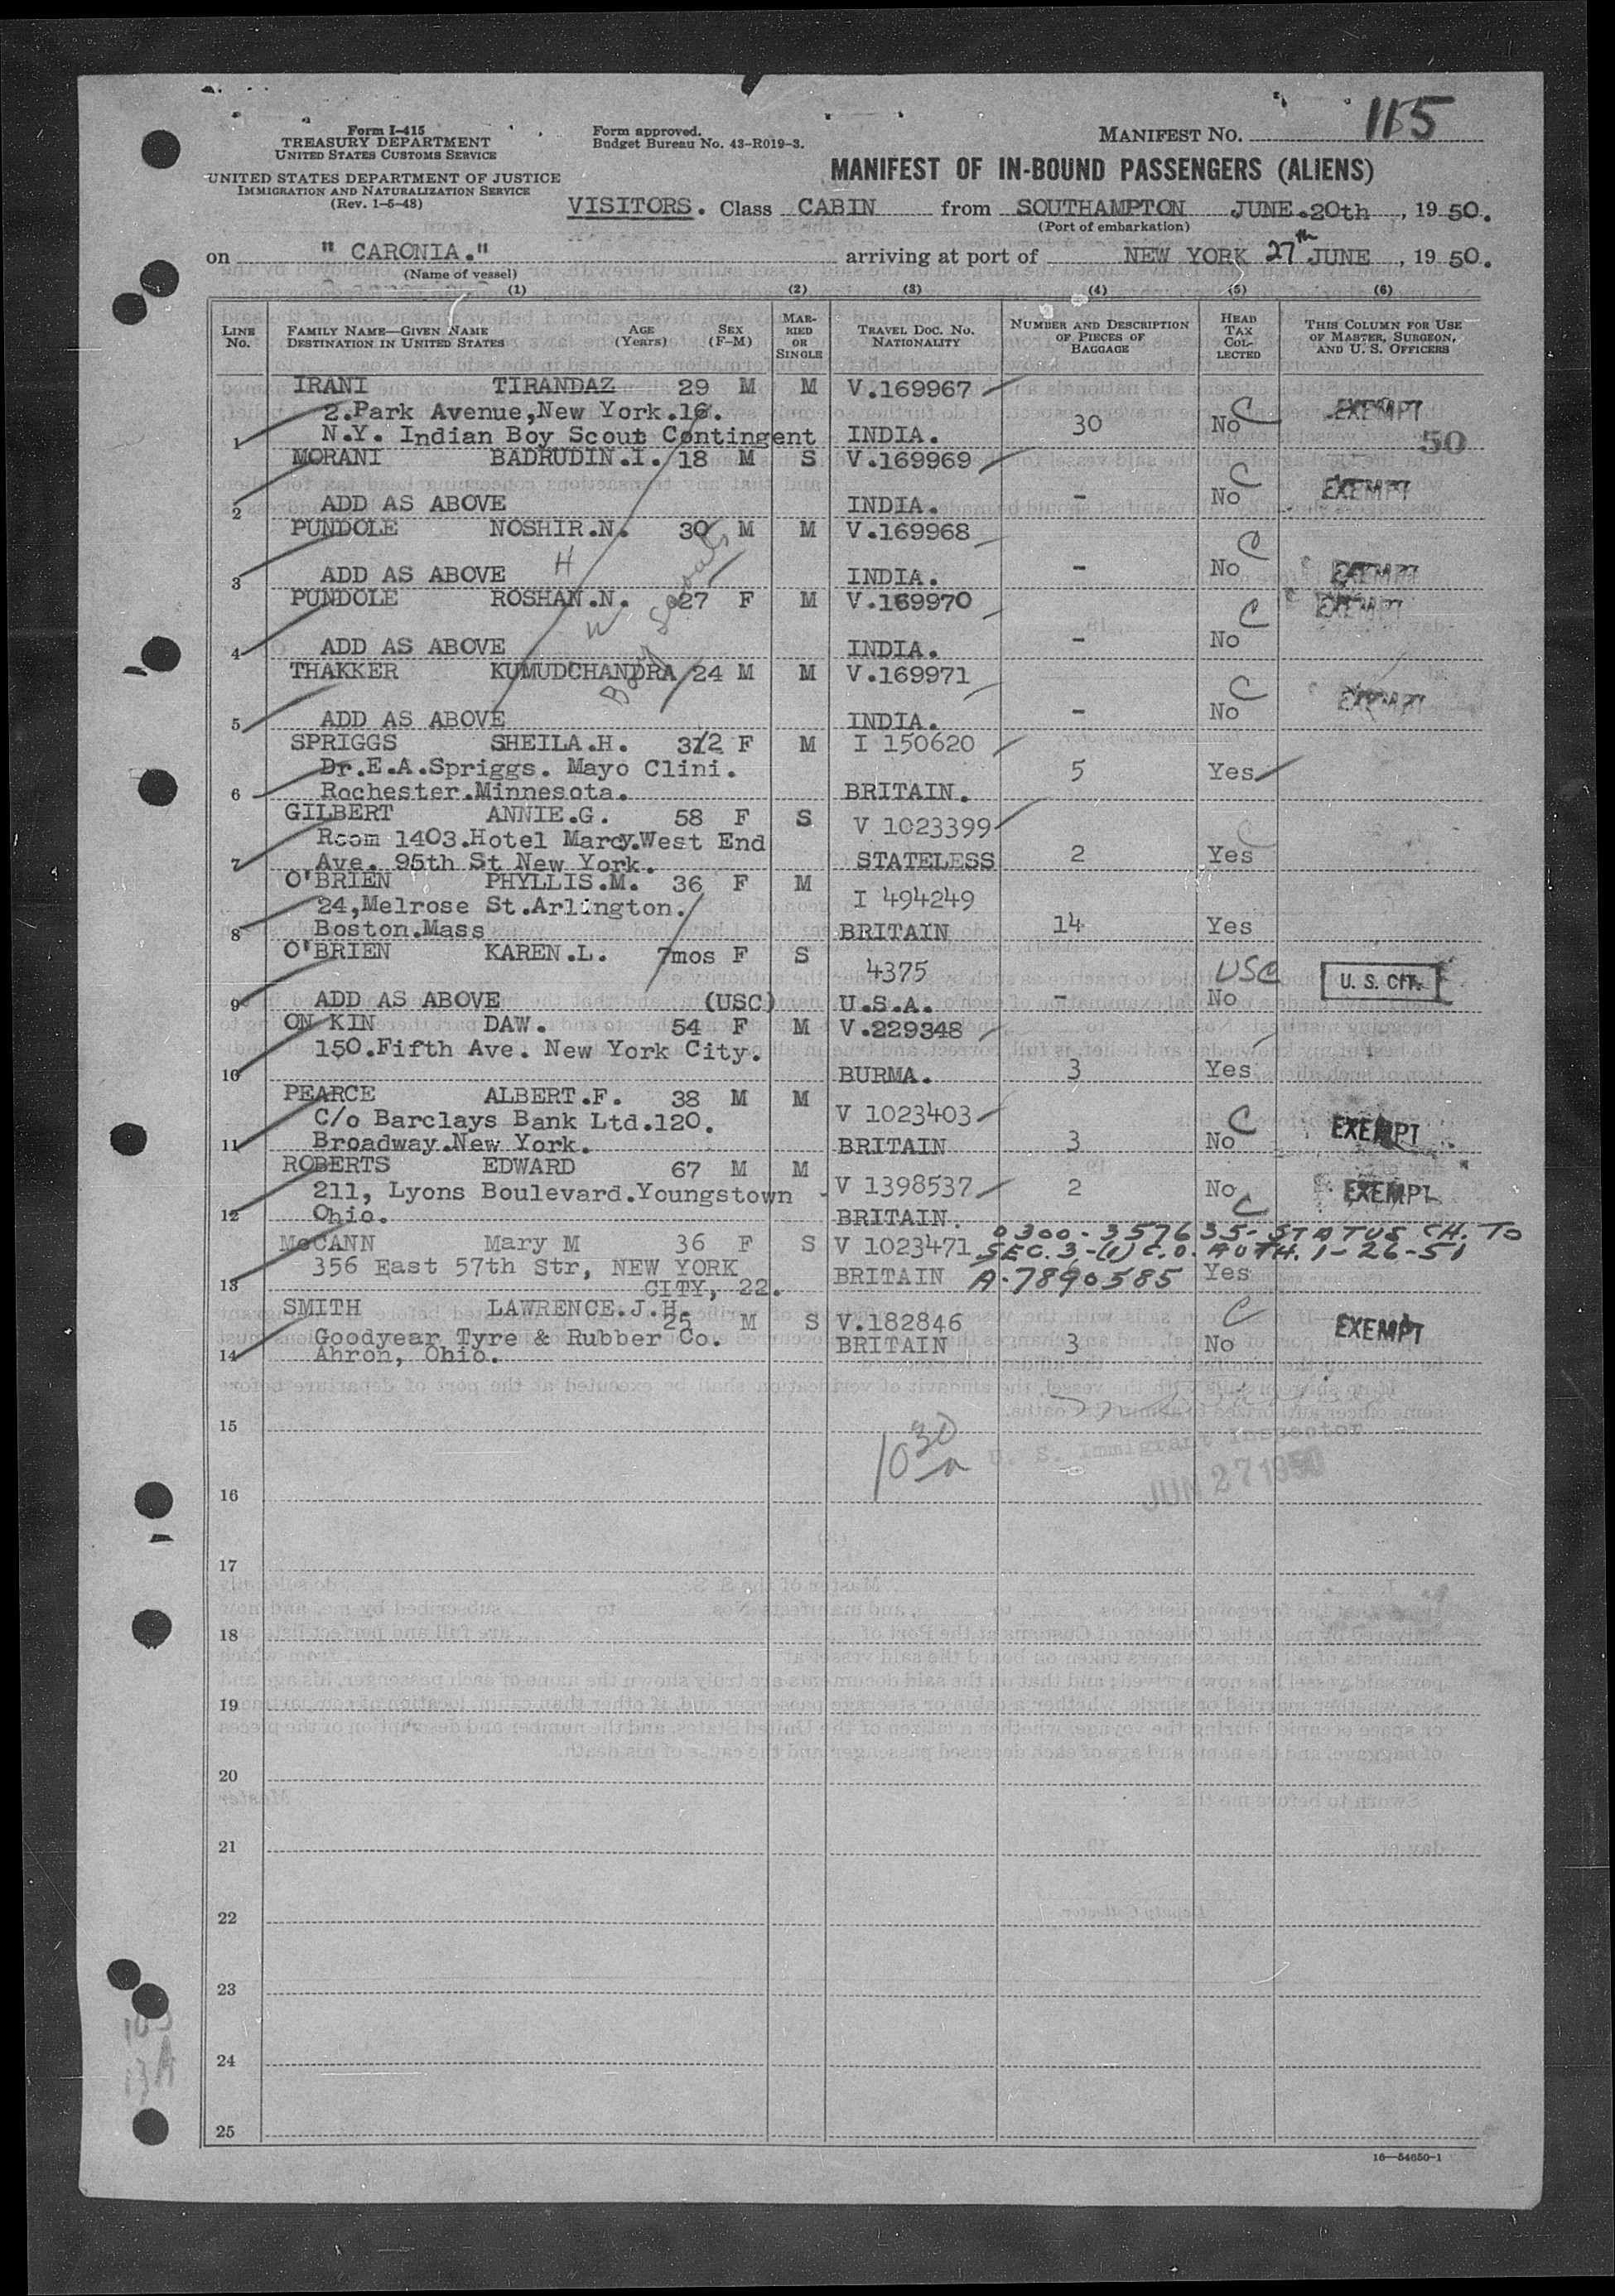 Form I-415
TREASURY DEPARTMENT
UNITED STATES CUSTOMS SERVICE
UNITED STATES DEPARTMENT OF JUSTICE
IMMIGRATION AND NATURALIZATION SERVICE
(Rev. 1-5-48)
Form approved.
Budget Bureau No. 43-R019-3.
MANIFEST NO. 115
MANIFEST OF IN-BOUND PASSENGERS (ALIENS)
VISITORS. Class CABIN from SOUTHAMPTON JUNE.20th, 19 50.
(Port of embarkation)
on " CARONIA." arriving at port of NEW YORK 27th JUNE, 19 50.
(Name of vessel)
(1) (2) (3) (4) (5) (6)
LINE No. FAMILY NAME—GIVEN NAME DESTINATION IN UNITED STATES AGE (Years) SEX (F-M) MARRIED OR SINGLE TRAVEL DOC. NO. NATIONALITY NUMBER AND DESCRIPTION OF PIECES OF BAGGAGE HEAD TAX COLLECTED THIS COLUMN FOR USE OF MASTER, SURGEON, AND U. S. OFFICERS
IRANI TIRANDAZ 29 M M V.169967
2.Park Avenue,New York.16. C EXEMPT
1 N.Y. Indian Boy Scout Contingent INDIA. 30 No 50
MORANI BADRUDIN.I. 18 M S V.169969
2 ADD AS ABOVE INDIA. - No C EXEMPT
PUNDOLE NOSHIR.N. 30 M M V.169968
3 ADD AS ABOVE H INDIA. - No C EXEMPT
PUNDOLE ROSHAN.N. 27 F M V.169970
4 ADD AS ABOVE W INDIA. - No C EXEMPT
THAKKER KUMUDCHANDRA 24 M M V.169971
Boy Scouts
5 ADD AS ABOVE INDIA. - No C EXEMPT
SPRIGGS SHEILA.H. 312 F M I 150620
Dr.E.A.Spriggs. Mayo Clini. 5 Yes
6 Rochester.Minnesota. BRITAIN.
GILBERT ANNIE.G. 58 F S V 1023399
Room 1403.Hotel Marcy.West End C
7 Ave. 95th St New York. STATELESS 2 Yes
O'BRIEN PHYLLIS.M. 36 F M
24,Melrose St.Arlington. I 494249
8 Boston.Mass BRITAIN 14 Yes
O'BRIEN KAREN.L. 7mos F S 4375 USC U. S. CIT.
9 ADD AS ABOVE (USC) U.S.A. - No
ON KIN DAW. 54 F M V.229348
150.Fifth Ave. New York City.
10 BURMA. 3 Yes
PEARCE ALBERT.F. 38 M M
C/o Barclays Bank Ltd.120. V 1023403 C EXEMPT
11 Broadway.New York. BRITAIN 3 No
ROBERTS EDWARD 67 M M
211, Lyons Boulevard.Youngstown V 1398537 2 No EXEMPT
12 Ohio. BRITAIN. C
0300-357635-STATUS CH. TO
McCANN Mary M 36 F S V 1023471 SEC. 3-(1) C.O. AUTH. 1-26-51
356 East 57th Str, NEW YORK BRITAIN A-7890585 Yes
13 CITY, 22.
SMITH LAWRENCE.J.H. 25 M S V.182846 C EXEMPT
Goodyear Tyre & Rubber Co. BRITAIN 3 No
14 Ahron, Ohio.
15
10 30 a
U. S. Immigrant Inspector
JUN 27 1950
16
17
18
19
20
21
22
23
24
25
16—54650-1